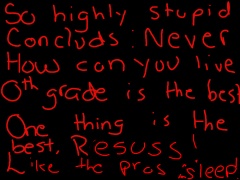 So highly stupid
Concluds: Never
How can you live
0th grade is the bes
One thing is the
best. Resuss!
Like the pros sleep